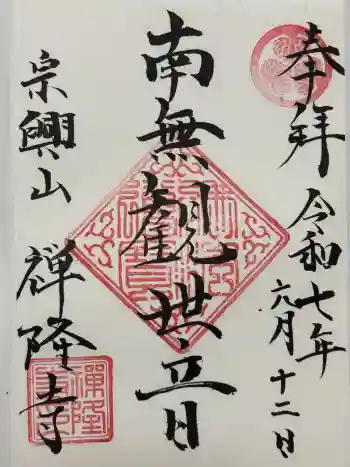 奉拜
令和七年
六月十二日
南無観世音
宗興山
禅隆寺
禅隆